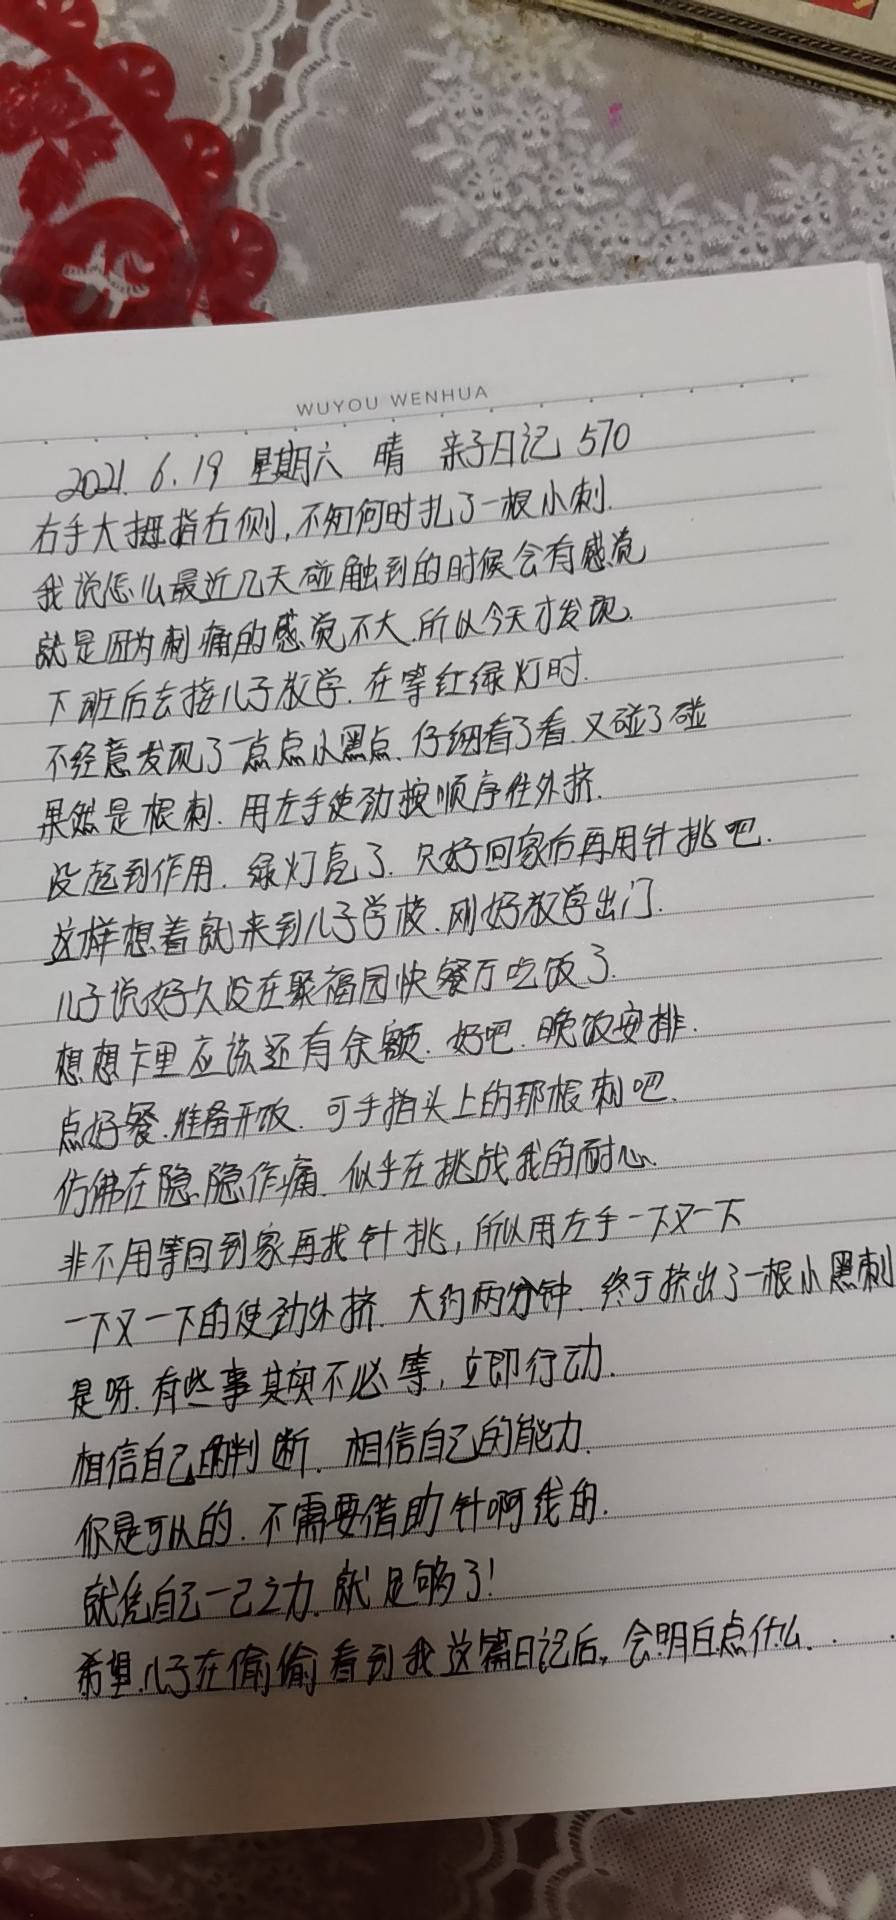 WUYOU WENHUA
2021. 6. 19 星期六 晴 亲子日记 570
右手大拇指右侧,不知何时扎了一根小刺.
我说怎么最近几天碰触到的时候会有感觉
就是因为刺痛的感觉不大.所以今天才发现.
下班后去接儿子放学.在等红绿灯时.
不经意发现了一点点小黑点.仔细看了看.又碰了碰
果然是根刺.用左手使劲按顺序往外挤.
没起到作用.绿灯亮了.只好回家后再用针挑吧.
这样想着就来到儿子学校.刚好放学出门.
儿子说好久没在聚福园快餐厅吃饭了.
想想卡里应该还有余额.好吧.晚饭安排.
点好餐.准备开饭.可手指头上的那根刺吧.
仿佛在隐隐作痛.似乎在挑战我的耐心.
非不用等回到家再找针挑,所以用左手一下又一下
一下又一下的使劲外挤.大约两分钟.终于挤出了一根小黑刺
是呀.有些事其实不必等,立即行动.
相信自己的判断.相信自己的能力.
你是可以的.不需要借助针啊线的.
就凭自己一己之力.就足够了!
希望儿子在偷偷看到我这篇日记后,会明白点什么...